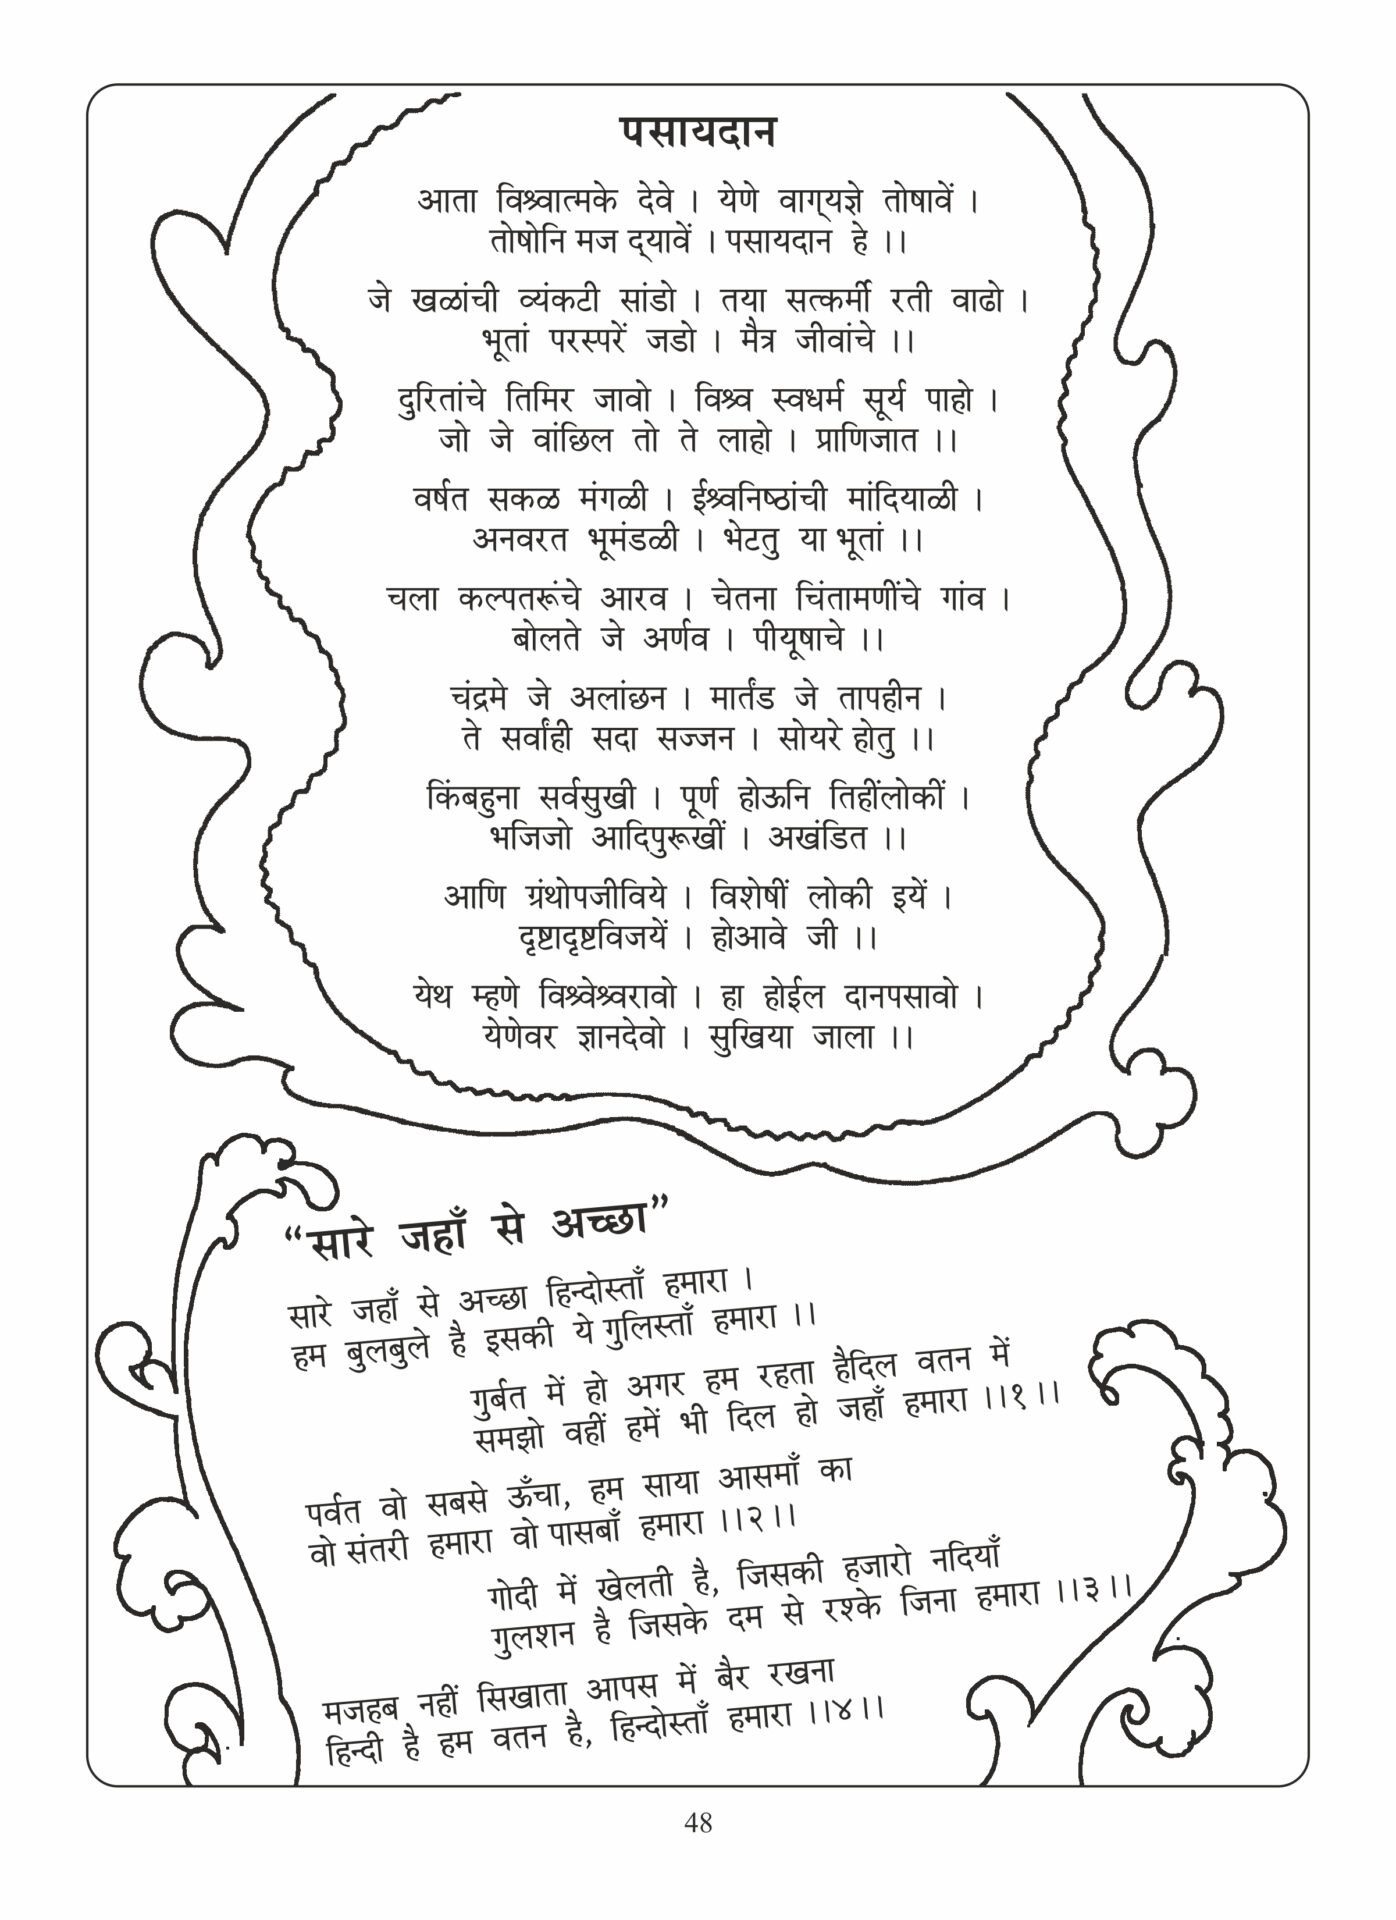 पसायदान
आता विश्वात्मके देवे । येणे वाग्‌यज्ञे तोषावें ।
तोषोनि मज द्‌यावें । पसायदान हे ।।
जे खळांची व्यंकटी सांडो । तया सत्कर्मी रती वाढो ।
भूतां परस्परें जडो । मैत्र जीवांचे ।।
दुरितांचे तिमिर जावो । विश्व स्वधर्म सूर्य पाहो ।
जो जे वांछिल तो ते लाहो । प्राणिजात ।।
वर्षत सकळ मंगळी । ईश्वनिष्ठांची मांदियाळी ।
अनवरत भूमंडळी । भेटतु या भूतां ।।
चला कल्पतरूंचे आरव । चेतना चिंतामणींचे गांव ।
बोलते जे अर्णव । पीयूषाचे ।।
चंद्रमे जे अलांछन । मार्तंड जे तापहीन ।
ते सर्वांही सदा सज्जन । सोयरे होतु ।।
किंबहुना सर्वसुखी । पूर्ण होऊनि तिहींलोकीं ।
भजिजो आदिपुरूखीं । अखंडित ।।
आणि ग्रंथोपजीविये । विशेषीं लोकी इयें ।
दृष्टादृष्टविजयें । होआवे जी ।।
येथ म्हणे विश्वेश्वरावो । हा होईल दानपसावो ।
येणेवर ज्ञानदेवो । सुखिया जाला ।।
“सारे जहाँ से अच्छा”
सारे जहाँ से अच्छा हिन्दोस्ताँ हमारा ।
हम बुलबुले है इसकी ये गुलिस्ताँ हमारा ।।
गुर्बत में हो अगर हम रहता हैदिल वतन में
समझो वहीं हमें भी दिल हो जहाँ हमारा ।।१।।
पर्वत वो सबसे ऊँचा, हम साया आसमाँ का
वो संतरी हमारा वो पासबाँ हमारा ।।२।।
गोदी में खेलती है, जिसकी हजारो नदियाँ
गुलशन है जिसके दम से रश्के जिना हमारा ।।३।।
मजहब नहीं सिखाता आपस में बैर रखना
हिन्दी है हम वतन है, हिन्दोस्ताँ हमारा ।।४।।
48